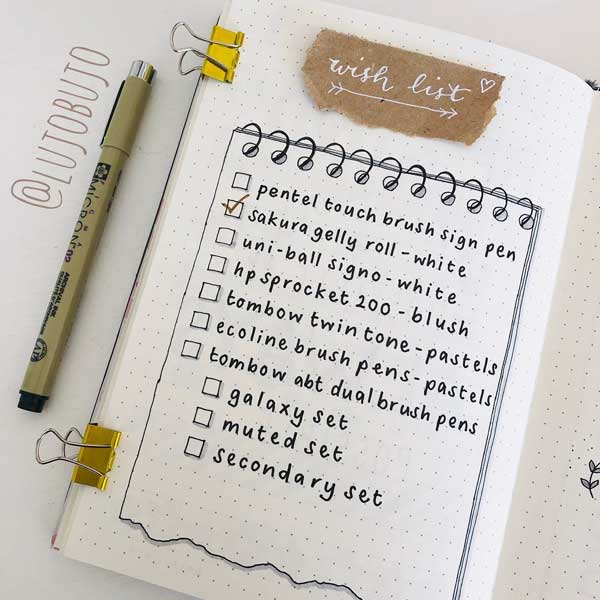 wish list
pentel touch brush sign pen
sakura gelly roll - white
uni-ball signo - white
hp sprocket 200 - blush
tombow twin tone - pastels
ecoline brush pens - pastels
tombow abt dual brush pens
galaxy set
muted set
secondary set
@LUJOBUJO
MICRON 02
ARCHIVAL INK